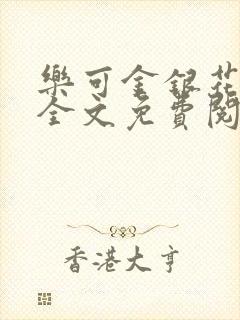 樂可金銀花
全文免費閱
香港大亨